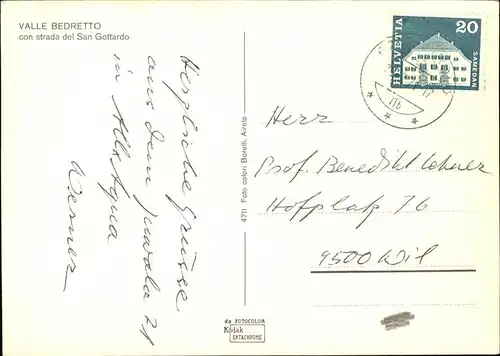 VALLE BEDRETTO
con strada del San Gottardo
Herzliche Grüsse
aus dem
in All'Acqua
Werner
4711 Foto colori Borelli, Airolo
HELVETIA
20
SAMEDAN
11b
Herr
Prof. Benedikt Lohner
Hofplatz 76
9500 Wil
da FOTOCOLOR
Kodak
EKTACHROME